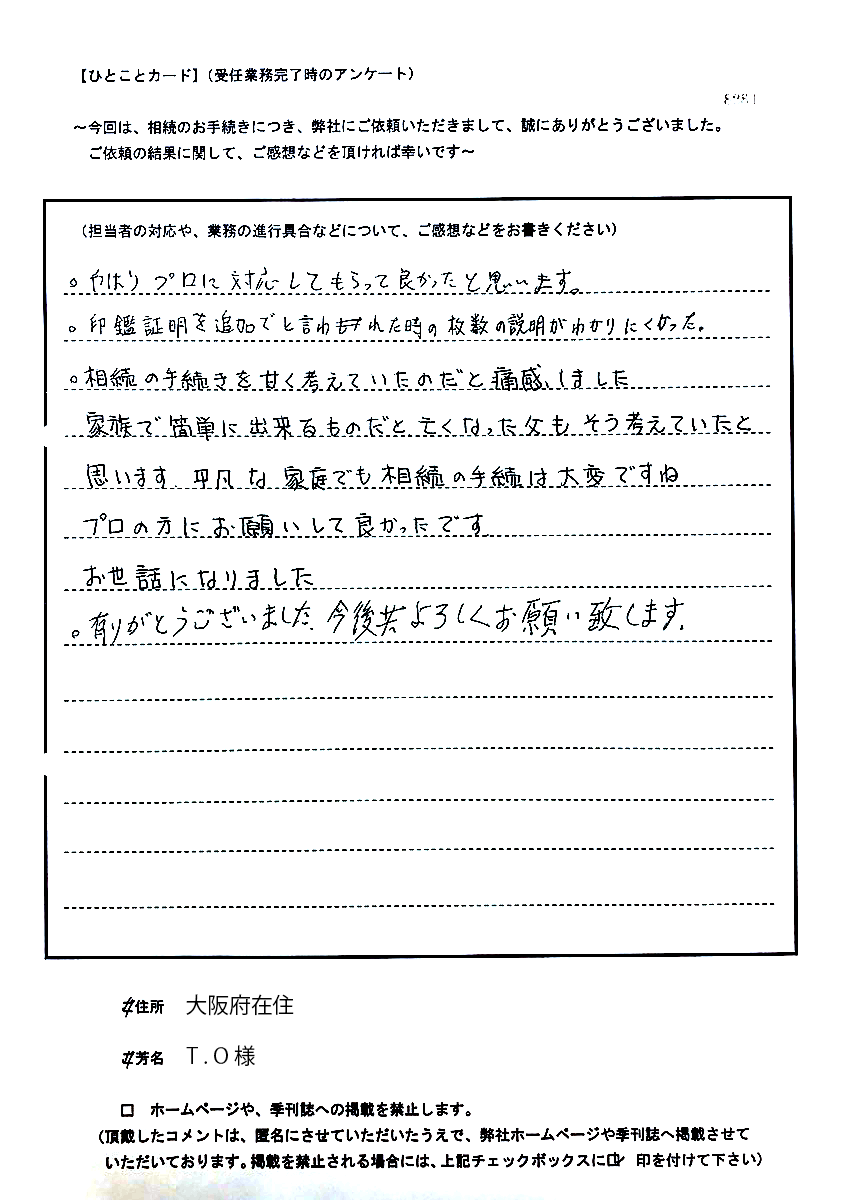 【ひとことカード】(受任業務完了時のアンケート)
8981
～今回は、相続のお手続きにつき、弊社にご依頼いただきまして、誠にありがとうございました。
ご依頼の結果に関して、ご感想などを頂ければ幸いです～
(担当者の対応や、業務の進行具合などについて、ご感想などをお書きください)
。やはりプロに対応してもらって良かったと思います。
。印鑑証明を追加でと言われた時の枚数の説明がわかりにくかった。
。相続の手続きを甘く考えていたのだと痛感しました
家族で簡単に出来るものだと亡くなった父もそう考えていたと
思います.平凡な家庭でも相続の手続は大変ですね
プロの方にお願いして良かったです
お世話になりました
。有りがとうございました.今後共よろしくお願い致します.
住所 大阪府在住
芳名 T.O様
□ ホームページや、季刊誌への掲載を禁止します。
(頂戴したコメントは、匿名にさせていただいたうえで、弊社ホームページや季刊誌へ掲載させて
いただいております。掲載を禁止される場合には、上記チェックボックスに☑ 印を付けて下さい)